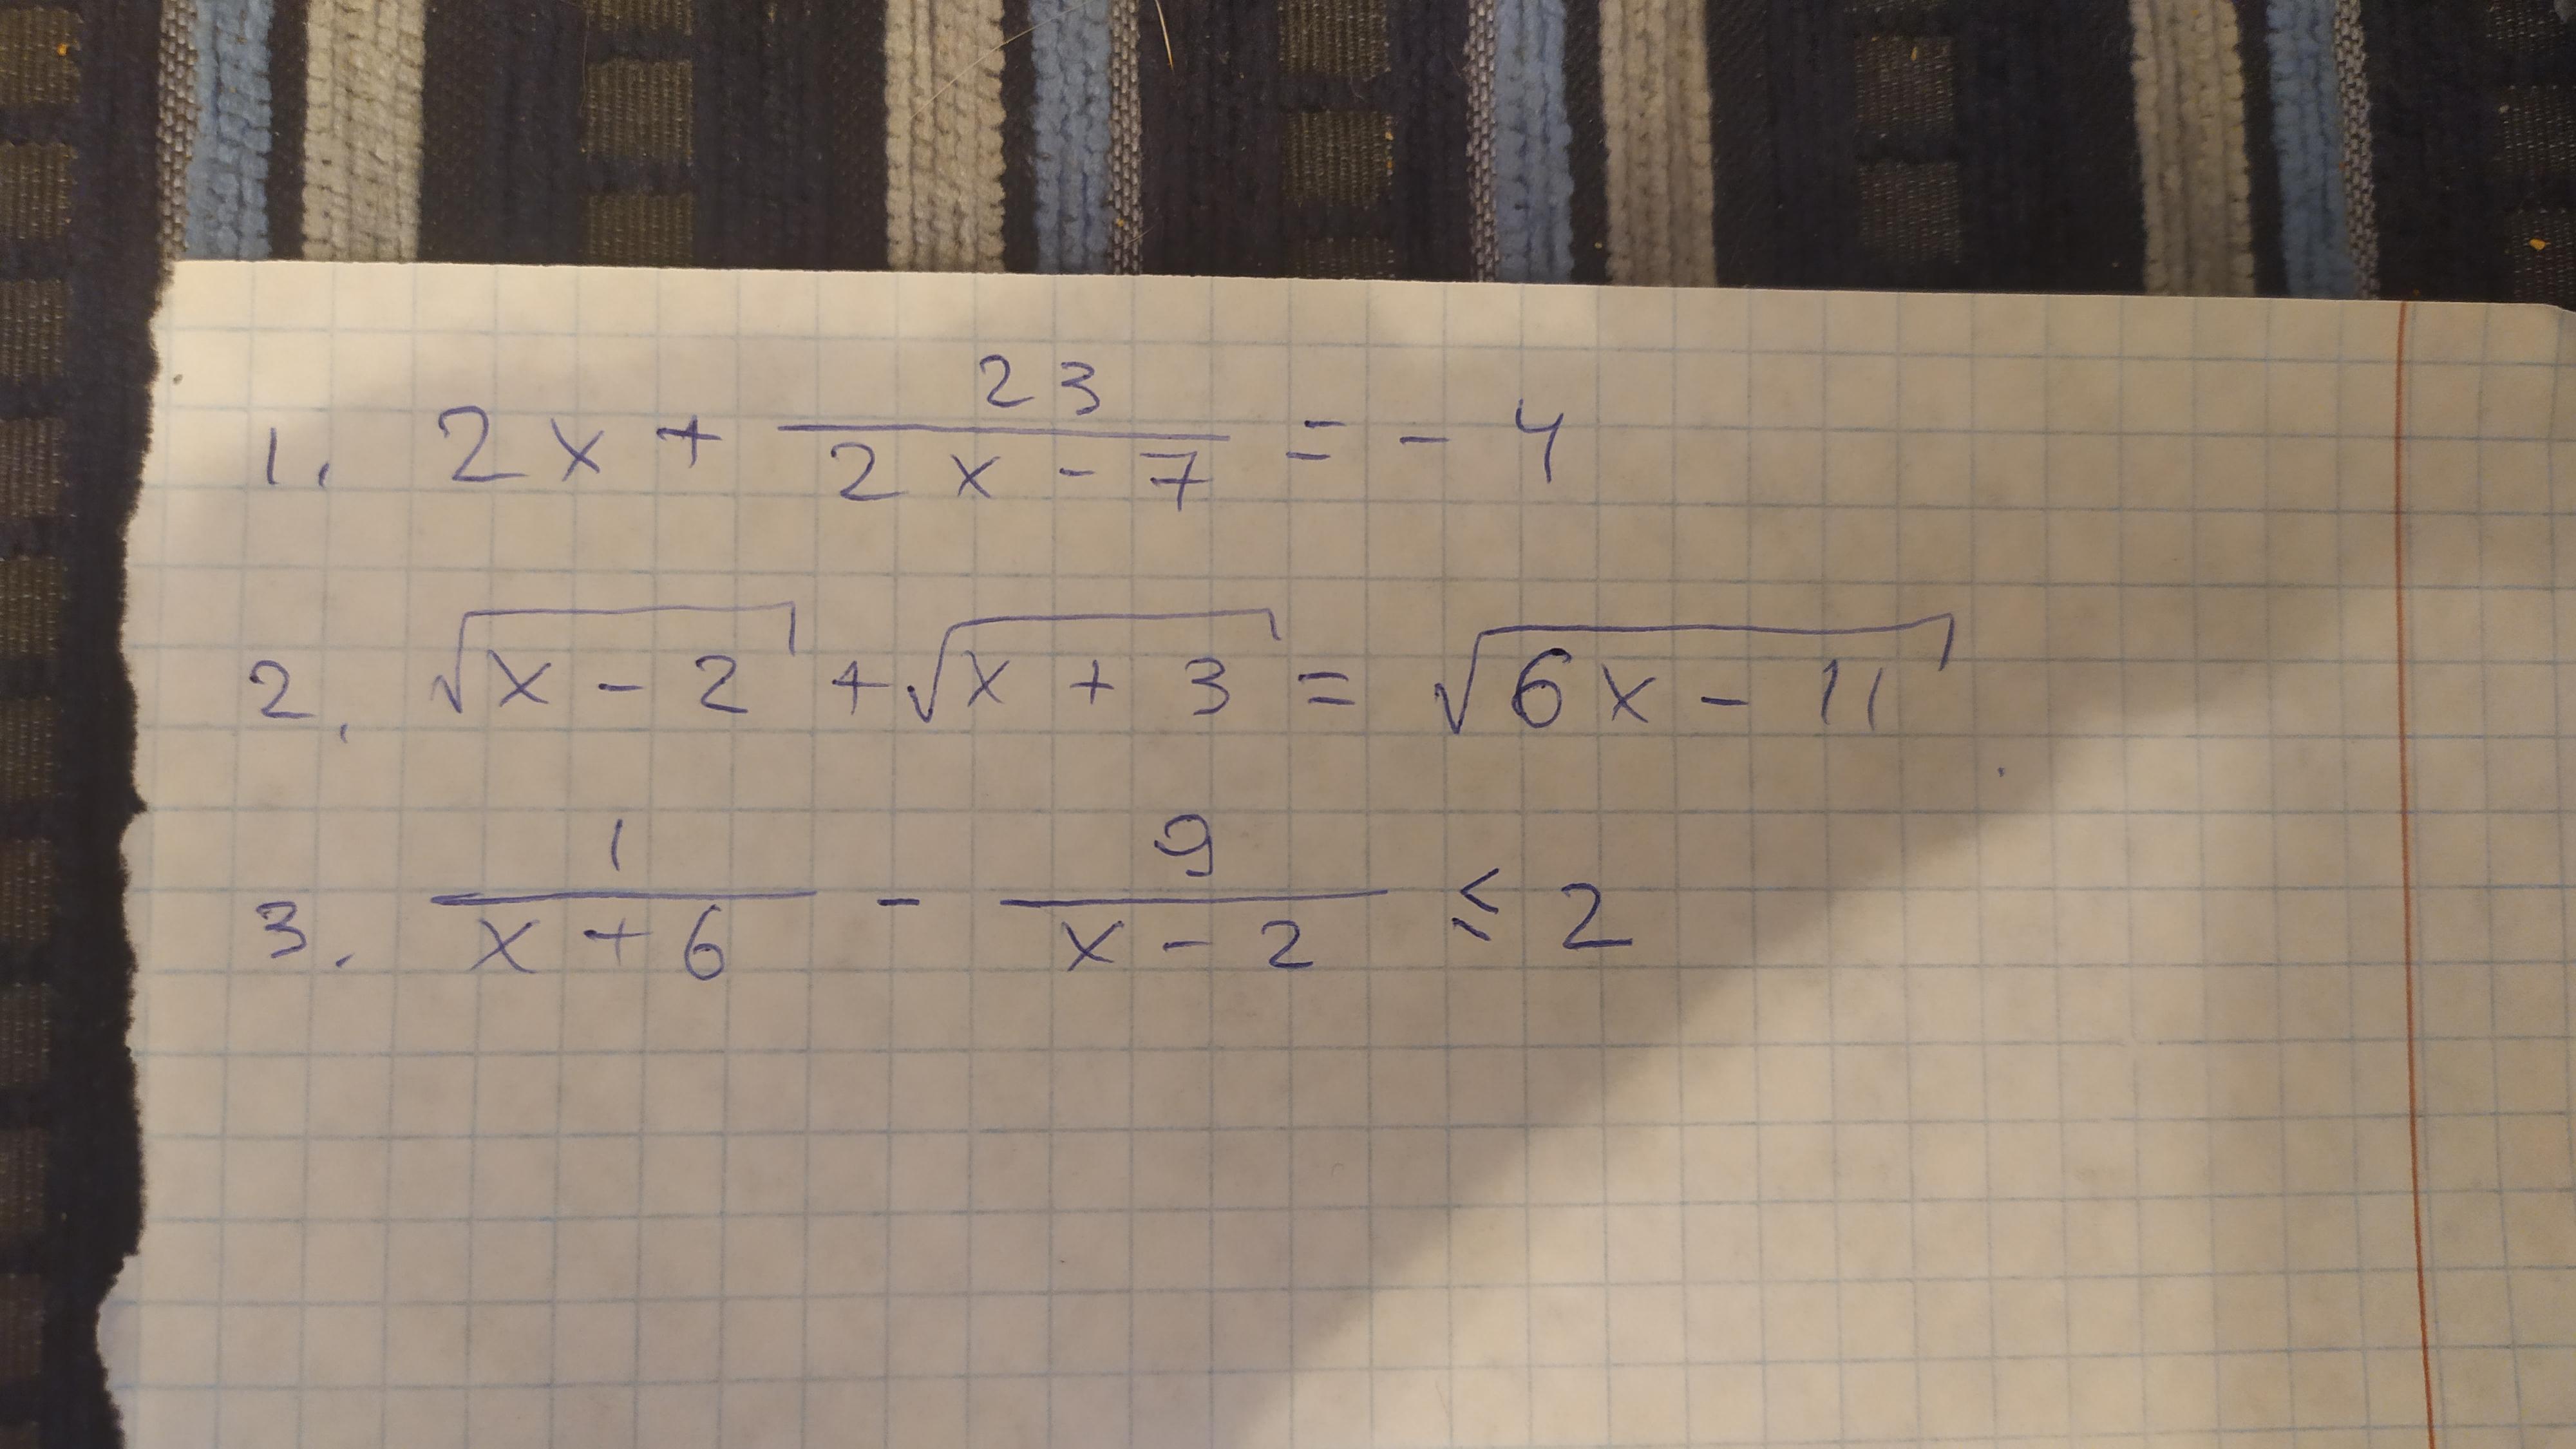 1. 2x + 23/(2x - 7) = - 4
2. √(x - 2) + √(x + 3) = √(6x - 11)
3. 1/(x + 6) - 9/(x - 2) ≤ 2